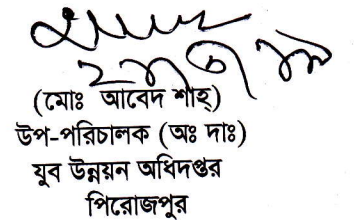 (মোঃ আবেদ শাহ্)
উপ-পরিচালক (অঃ দাঃ)
যুব উন্নয়ন অধিদপ্তর
পিরোজপুর